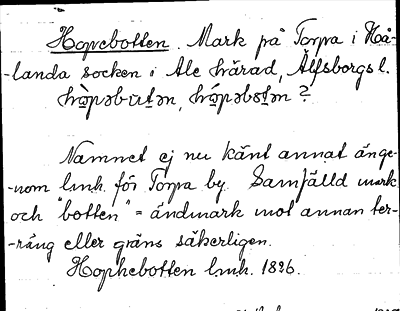 Hopebotten. Mark på Torpa i Hå-
-landa socken i Ale härad, Älfsborgs l.
Namnet ej nu känt annat änge-
-nom lmh. för Torpa by. Samfälld mark
och "botten" = ändmark mot annan ter-
-räng eller gräns säkerligen.
Hophebotten lmh. 1896.